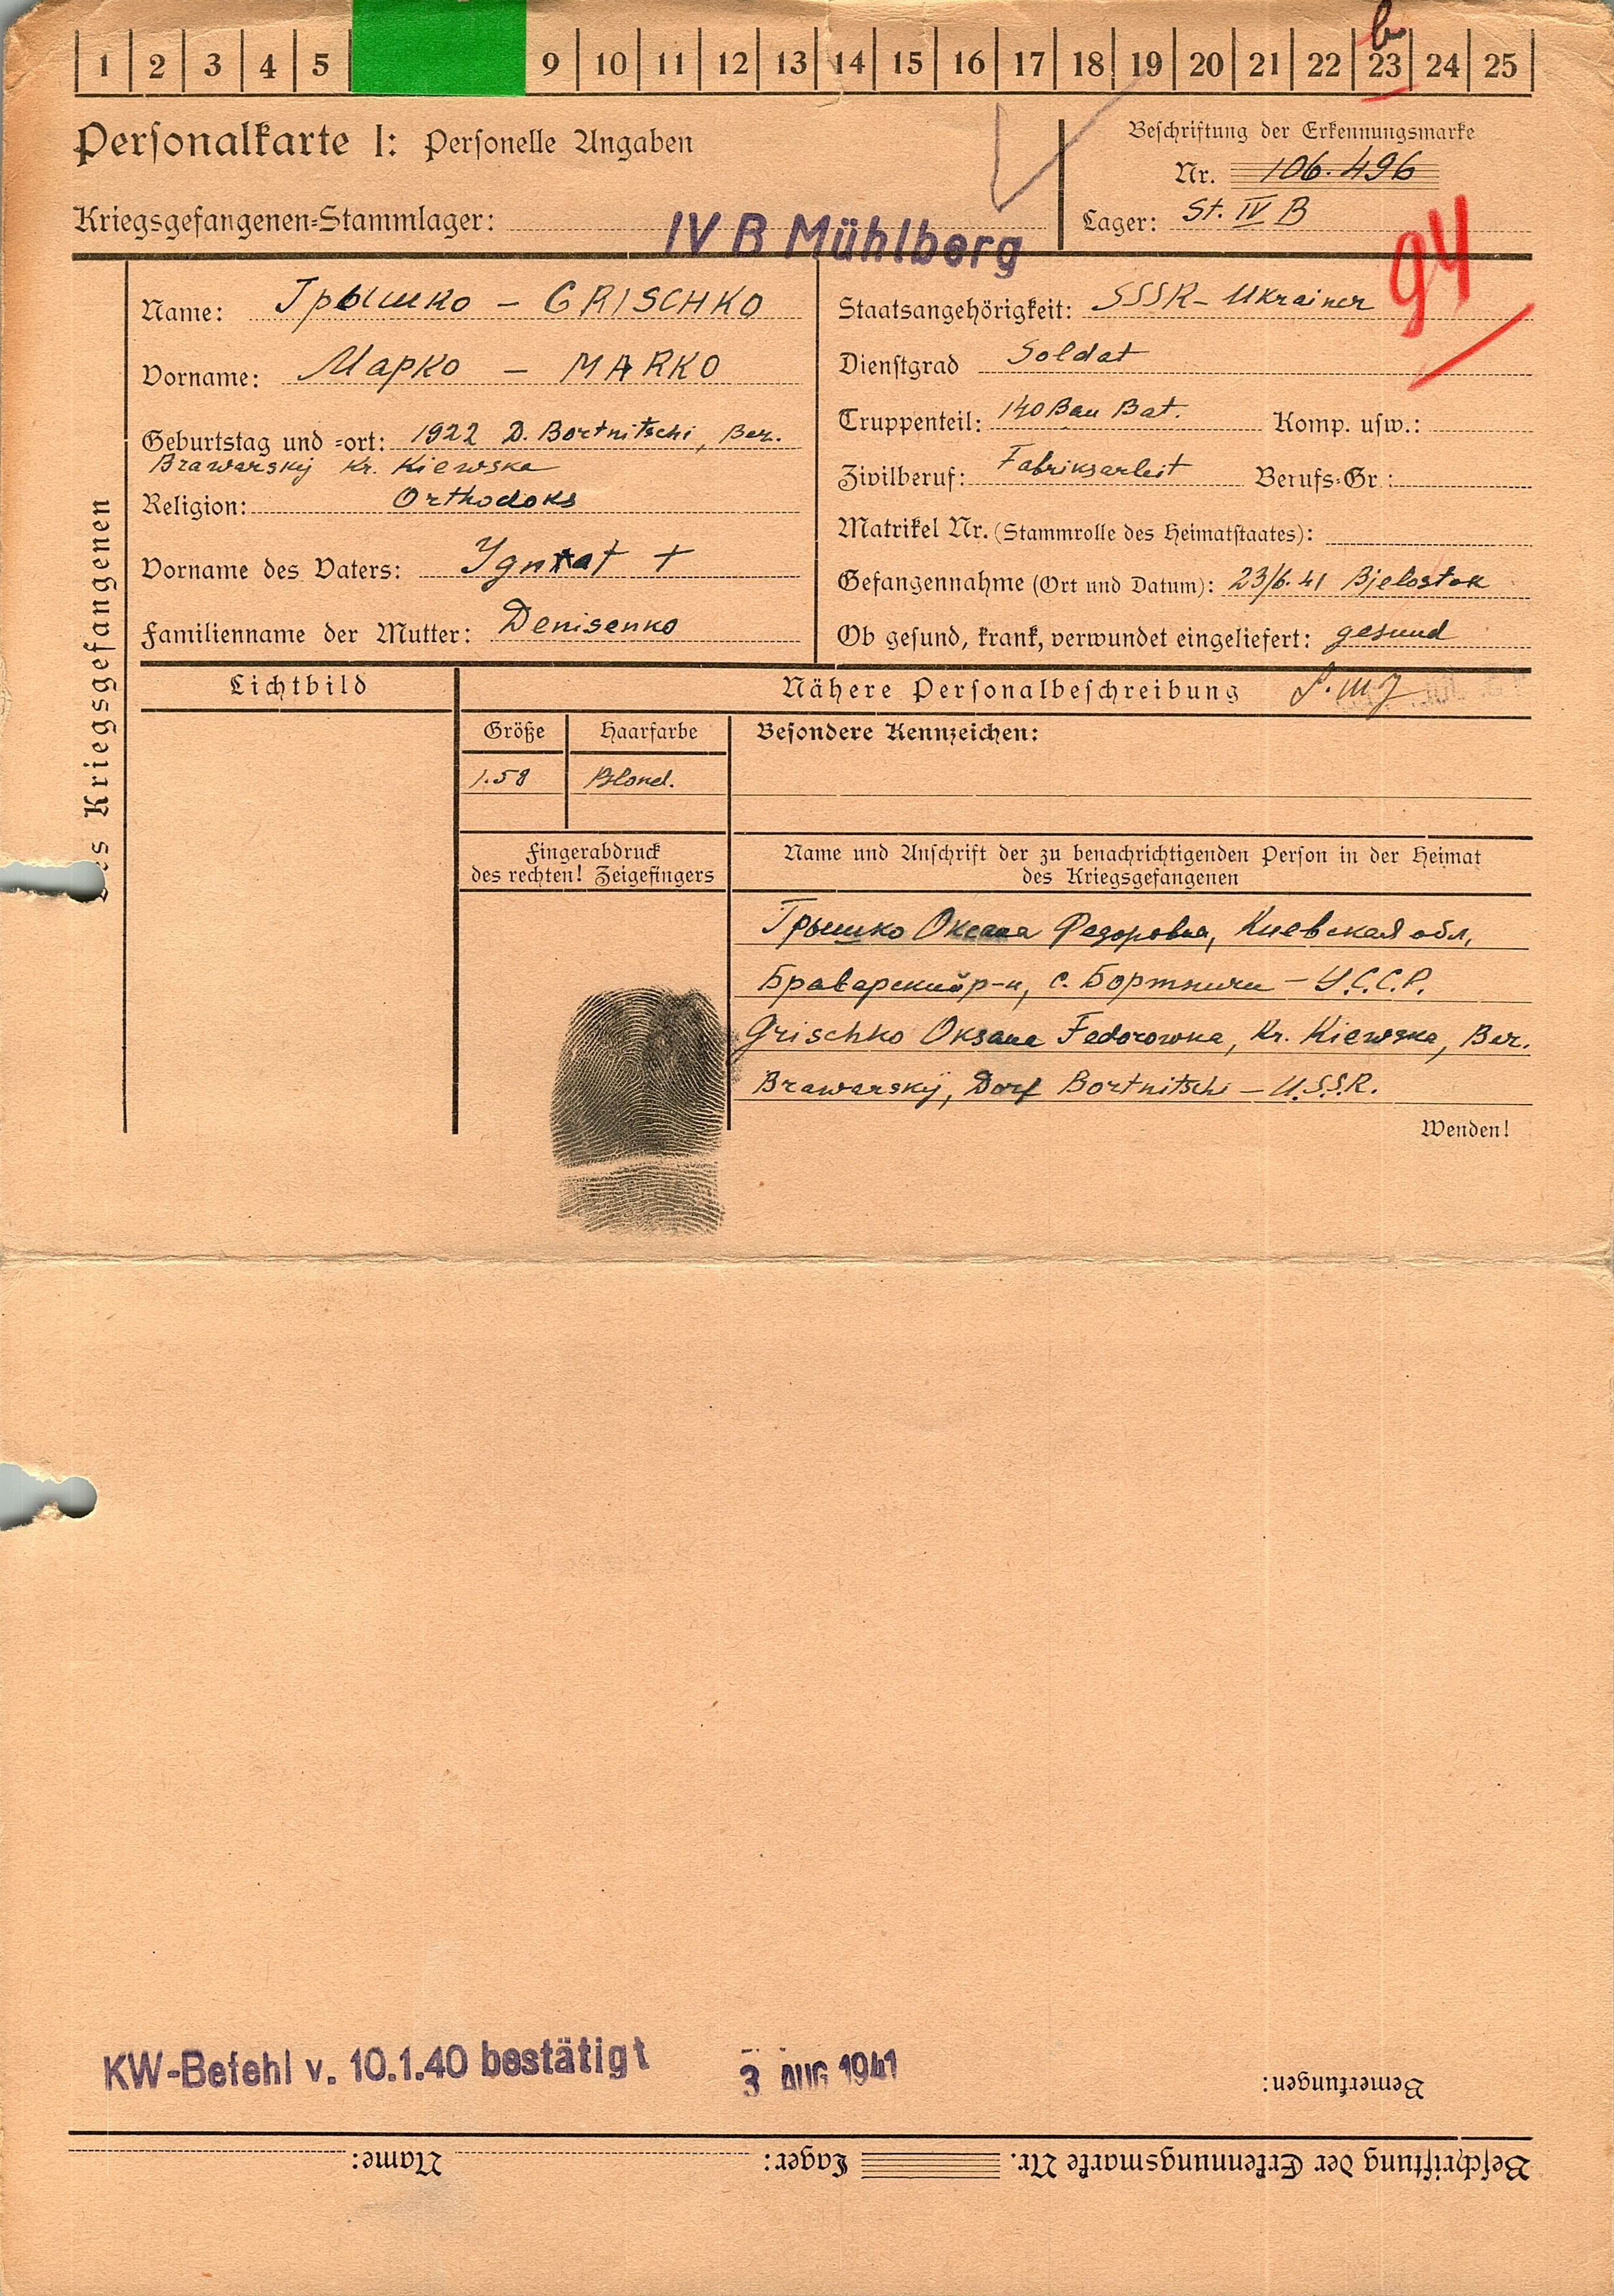 1 2 3 4 5 9 10 11 12 13 14 15 16 17 18 19 20 21 22 23 24 25
b
Personalkarte I: Personelle Angaben
Beschriftung der Erkennungsmarke
Nr. 106.496
Kriegsgefangenen-Stammlager: IV B Mühlberg
Lager: St. IV B
94
des Kriegsgefangenen
Name: Грышко – GRISCHKO
Vorname: Марко – MARKO
Geburtstag und -ort: 1922 D. Bortnitschi, Ber.
Brawarskij Kr. Kiewska
Religion: Orthodoks
Vorname des Vaters: Ygnat +
Familienname der Mutter: Denisenko
Staatsangehörigkeit: SSSR- Ukrainer
Dienstgrad Soldat
Truppenteil: 140 Bau Bat. Komp. usw.:
Zivilberuf: Fabriksarbeit Berufs-Gr.:
Matrikel Nr. (Stammrolle des Heimatstaates):
Gefangennahme (Ort und Datum): 23/6.41 Bjelostok
Ob gesund, krank, verwundet eingeliefert: gesund
Lichtbild
Nähere Personalbeschreibung
Größe Haarfarbe
Besondere Kennzeichen:
1.58 Blond.
Fingerabdruck
des rechten! Zeigefingers
Name und Anschrift der zu benachrichtigenden Person in der Heimat
des Kriegsgefangenen
Грышко Оксана Федоровна, Киевская обл,
Браварский р-н, с. Бортничи – У.С.С.Р.
Grischko Oksana Fedorowna, Kr. Kiewska, Ber.
Brawarskij, Dorf Bortnitschi – U.S.S.R.
Wenden!
KW-Befehl v. 10.1.40 bestätigt 3 AUG 1941
Bemerkungen:
Beschriftung der Erkennungsmarke Nr. Lager: Name: